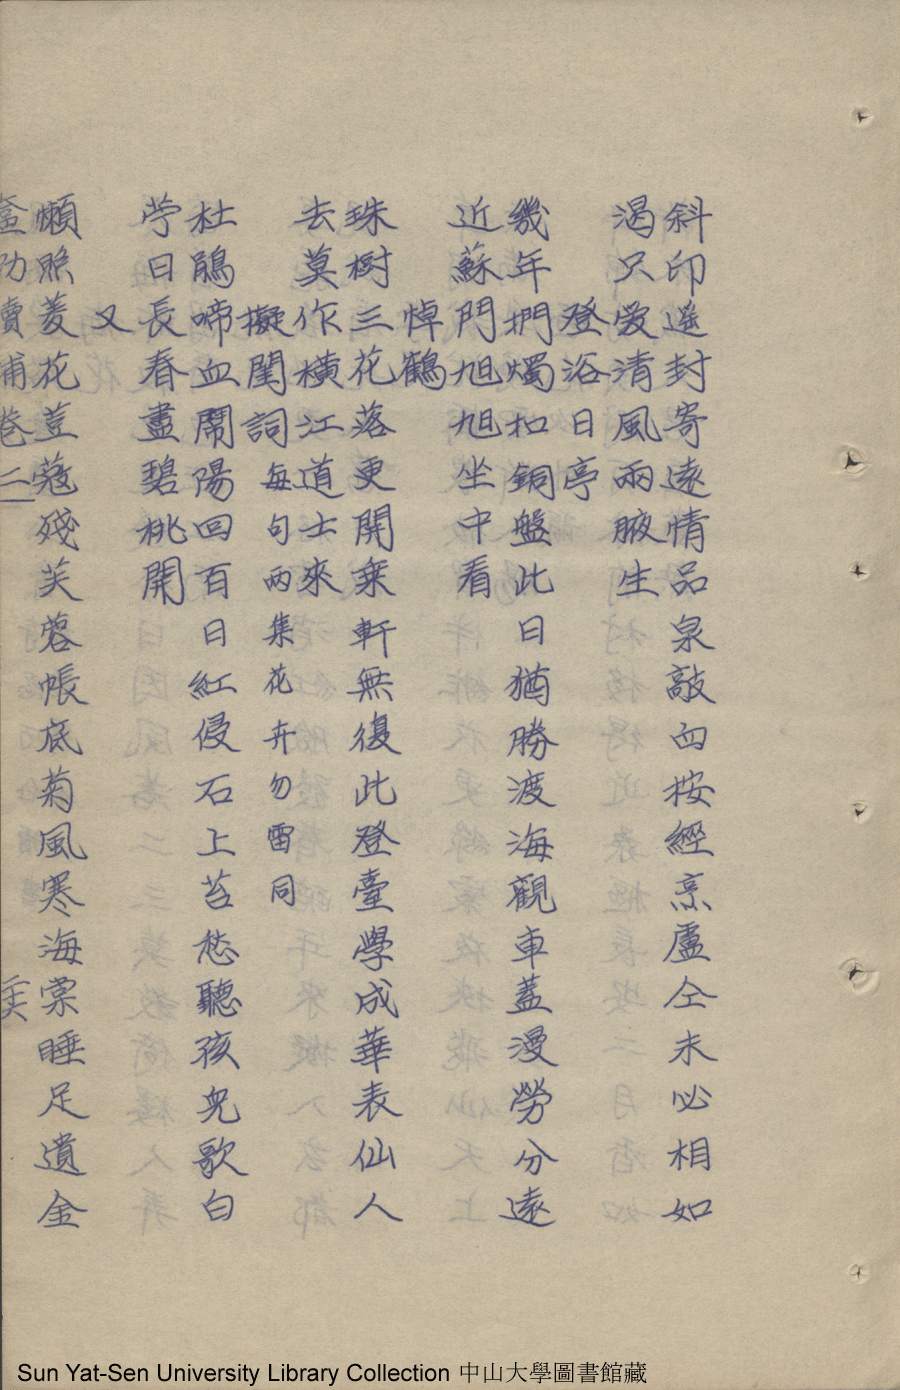 斜印遙封寄遠情品泉敲句按經烹盧仝未必相如
渴只愛清風兩腋生
登浴日亭
幾年捫燭扣銅盤此日猶勝渡海觀車蓋漫勞分遠
近蘇門旭旭坐中看
悼鶴
珠樹三花落更開乘軒無復此登臺學成華表仙人
去莫作橫江道士來
擬閨詞每句兩集花卉勿雷同
杜鵑啼血鬧陽回百日紅侵石上苔愁聽孩兒歌白
苧日長春盡碧桃開
又
懶照菱花荳蔻殘芙蓉帳底菊風寒海棠睡足遺金
卷二
Sun Yat-Sen University Library Collection 中山大學圖書館藏